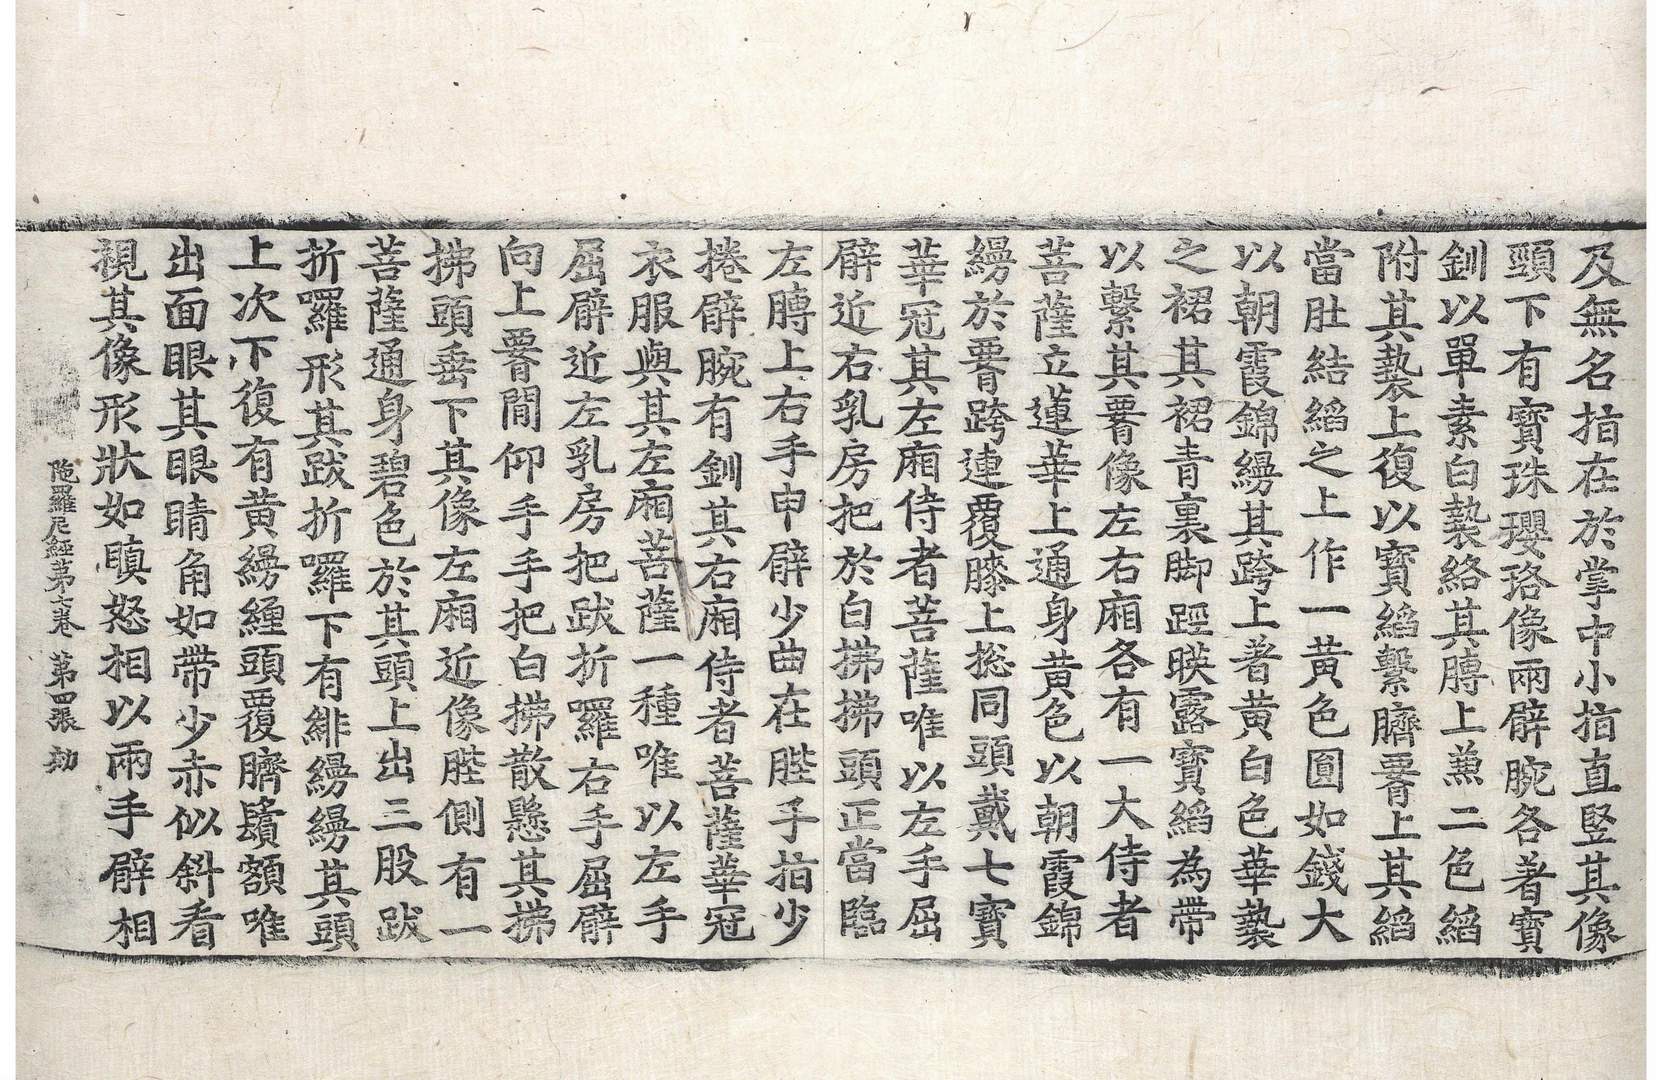 及無名指在於掌中小指直竪其像
頸下有寶珠瓔珞像兩臂腕各著寶
釧以單素白褺絡其膊上兼二色縚
附其褺上復以寶縚繫臍署上其縚
當肚結縚之上作一黃色圓如錢大
以朝霞錦縵其跨上著黃白色華褺
之裙其裙青裏脚踁暎露寶縚為帶
以繫其署像左右廂各有一大侍者
菩薩立蓮華上通身黃色以朝霞錦
縵於署跨連覆膝上捴同頭戴七寶
華冠其左廂侍者菩薩唯以左手屈
臂近右乳房把於白拂拂頭正當臨
左膊上右手申臂少曲在䏶手指少
捲臂腕有釧其右廂侍者菩薩華冠
衣服與其左廂菩薩一種唯以左手
屈臂近左乳房把跋折囉右手屈臂
向上署間仰手手把白拂散懸其拂
拂頭垂下其像左廂近像䏶側有一
菩薩通身碧色於其頭上出三股跋
折囉形其跋折囉下有緋縵縵其頭
上次下復有黃縵纏頭覆臍鬚額唯
出面眼其眼睛角如帶少赤似斜看
視其像形狀如瞋怒相以兩手臂相
陁羅尼經第七卷 第四張 効